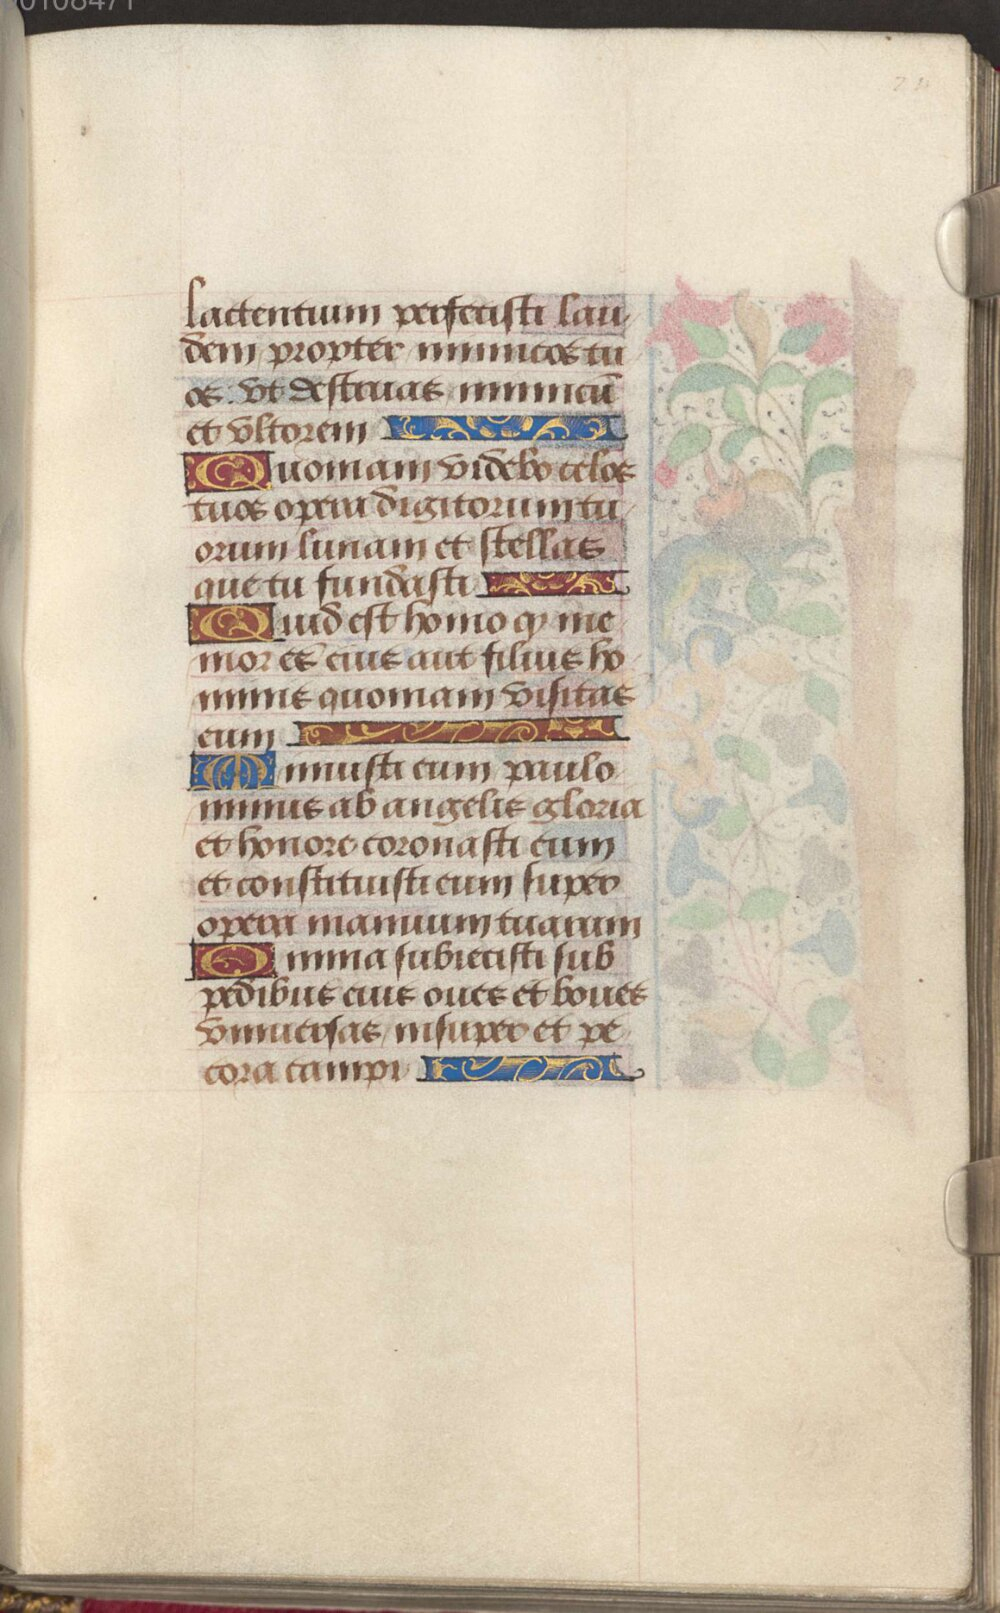 00108471
lactentium perfecisti lau
dem propter inimicos tu
os. vt destruas inimicū
et vltorem
Quoniam videbo celos
tuos opera digitorum tu
orum lunam et stellas
que tu fundasti
Quid est homo qɔ me
mor es eius aut filius ho
minis quoniam visitas
eum
Minuisti eum paulo
minus ab angelis gloria
et honore coronasti eum
et constituisti eum super
opera manuum tuarum
Omnia subiecisti sub
pedibus eius oues et boues
vniuersas insuper et pe
cora campi